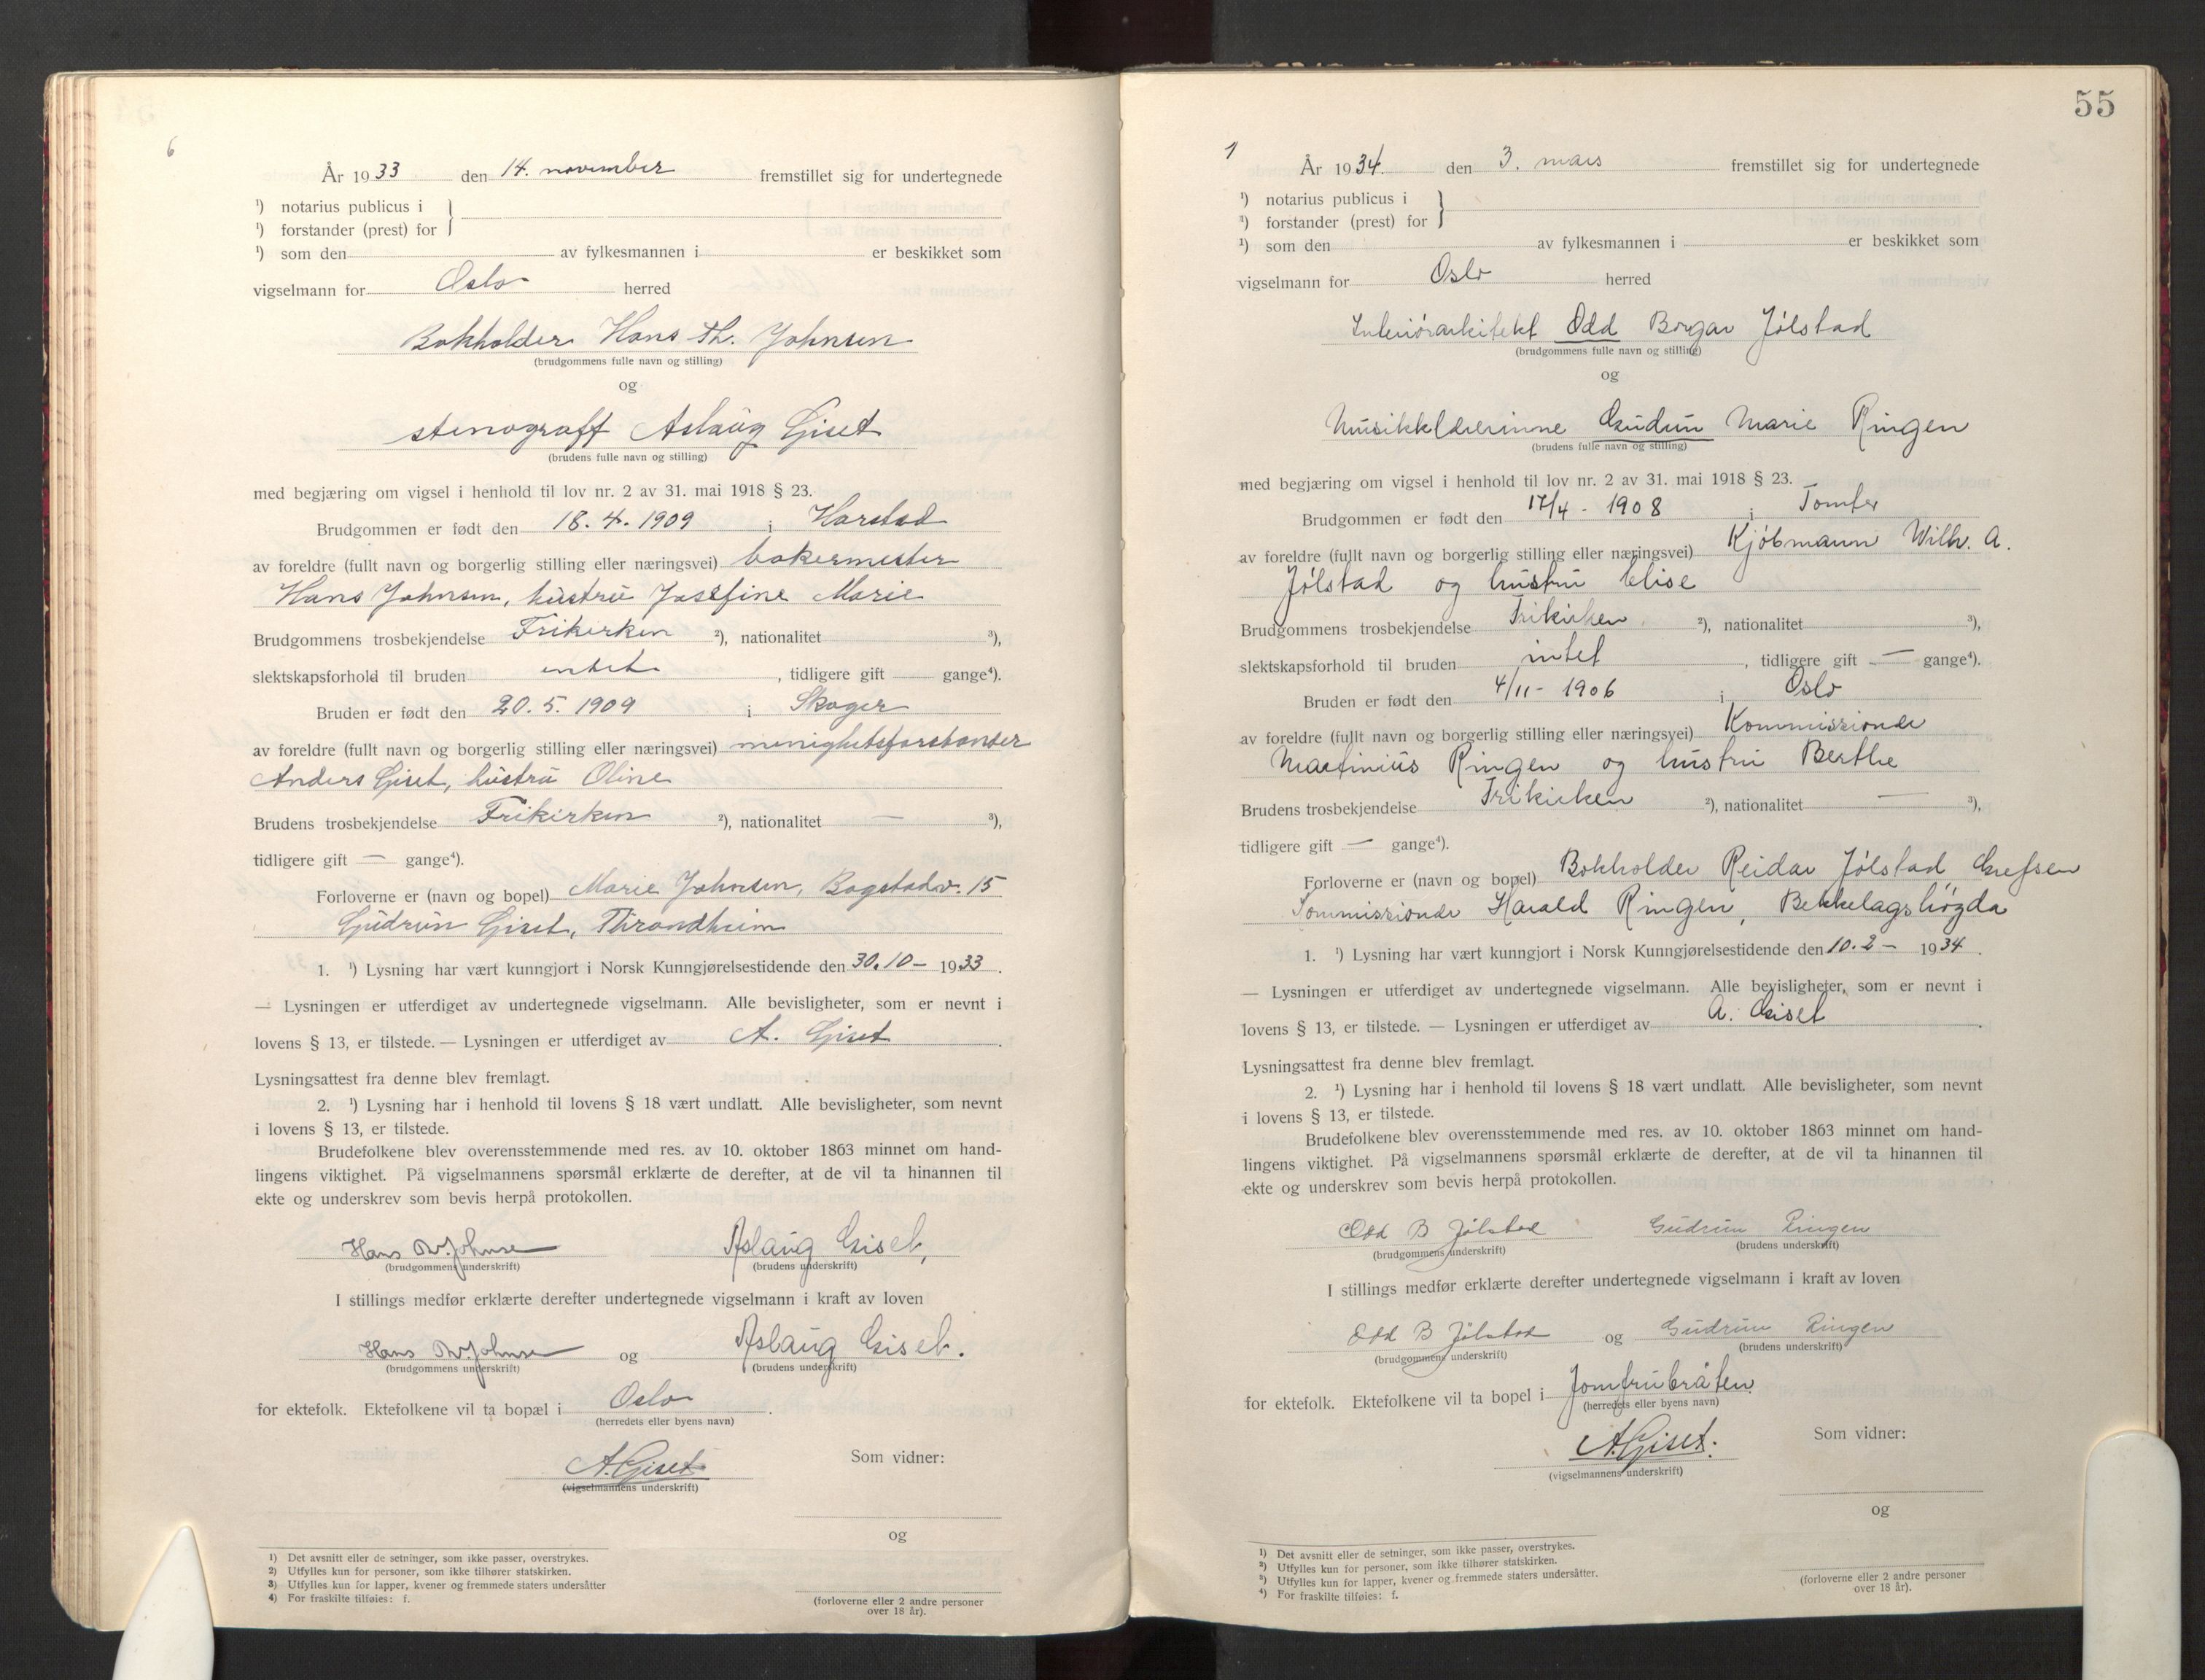 6
År 1933 den 14. november fremstillet sig for undertegnede
¹) notarius publicus i
¹) forstander (prest) for
¹) som den av fylkesmannen i er beskikket som
vigselmann for Oslo herred
Bokholder Hans Th. Johnsen
(brudgommens fulle navn og stilling)
og
stenograff Aslaug Giset
(brudens fulle navn og stilling)
med begjæring om vigsel i henhold til lov nr. 2 av 31. mai 1918 § 23.
Brudgommen er født den 18.4.1909 i Harstad
av foreldre (fullt navn og borgerlig stilling eller næringsvei) bakermester
Hans Johnsen, hustru Josefine Marie
Brudgommens trosbekjendelse Frikirken ²), nationalitet ³),
slektskapsforhold til bruden intet , tidligere gift gange⁴).
Bruden er født den 20.5.1909 i Skoger
av foreldre (fullt navn og borgerlig stilling eller næringsvei) menighetsforstander
Anders Giset, hustru Oline
Brudens trosbekjendelse Frikirken ²), nationalitet — ³),
tidligere gift — gange⁴).
Forloverne er (navn og bopel) Marie Johnsen, Bogstadv. 15
Gudrun Giset, Throndheim
1. ¹) Lysning har vært kunngjort i Norsk Kunngjørelsestidende den 30.10 – 1933.
— Lysningen er utferdiget av undertegnede vigselmann. Alle bevisligheter, som er nevnt i
lovens § 13, er tilstede. — Lysningen er utferdiget av A. Giset.
Lysningsattest fra denne blev fremlagt.
2. ¹) Lysning har i henhold til lovens § 18 vært undlatt. Alle bevisligheter, som nevnt
i lovens § 13, er tilstede.
Brudefolkene blev overensstemmende med res. av 10. oktober 1863 minnet om hand-
lingens viktighet. På vigselmannens spørsmål erklærte de derefter, at de vil ta hinannen til
ekte og underskrev som bevis herpå protokollen.
Hans Th. Johnsen Aslaug Giset,
(brudgommens underskrift) (brudens underskrift)
I stillings medfør erklærte derefter undertegnede vigselmann i kraft av loven
Hans Th. Johnsen og Aslaug Giset.
(brudgommens underskrift) (brudens underskrift)
for ektefolk. Ektefolkene vil ta bopæl i Oslo.
(herredets eller byens navn)
A. Giset. Som vidner:
(vigselmannens underskrift)
og
¹) Det avsnitt eller de setninger, som ikke passer, overstrykes.
²) Utfylles kun for personer, som ikke tilhører statskirken.
³) Utfylles kun for lapper, kvener og fremmede staters undersåtter
⁴) For fraskilte tilføies: f.
(forloverne eller 2 andre personer
over 18 år).
55
1
År 1934. den 3. mars fremstillet sig for undertegnede
¹) notarius publicus i
¹) forstander (prest) for
¹) som den av fylkesmannen i er beskikket som
vigselmann for Oslo herred
Interiørarkitekt Odd Borgar Jølstad
(brudgommens fulle navn og stilling)
og
Musikklærerinne Gudrun Marie Ringen
(brudens fulle navn og stilling)
med begjæring om vigsel i henhold til lov nr. 2 av 31. mai 1918 § 23.
Brudgommen er født den 17/4 - 1908 i Tomter
av foreldre (fullt navn og borgerlig stilling eller næringsvei) Kjøbmann Wilh. A.
Jølstad og hustru Elise
Brudgommens trosbekjendelse Frikirken ²), nationalitet ³),
slektskapsforhold til bruden intet , tidligere gift — gange⁴).
Bruden er født den 4/11 - 1906 i Oslo
av foreldre (fullt navn og borgerlig stilling eller næringsvei) Kommissionær
Martinius Ringen og hustru Berthe
Brudens trosbekjendelse Frikirken ²), nationalitet — ³),
tidligere gift — gange⁴).
Forloverne er (navn og bopel) Bokholder Reidar Jølstad Grefsen
Kommissionær Harald Ringen, Bekkelagshøgda
1. ¹) Lysning har vært kunngjort i Norsk Kunngjørelsestidende den 10.2 – 1934.
— Lysningen er utferdiget av undertegnede vigselmann. Alle bevisligheter, som er nevnt i
lovens § 13, er tilstede. — Lysningen er utferdiget av A. Giset.
Lysningsattest fra denne blev fremlagt.
2. ¹) Lysning har i henhold til lovens § 18 vært undlatt. Alle bevisligheter, som nevnt
i lovens § 13, er tilstede.
Brudefolkene blev overensstemmende med res. av 10. oktober 1863 minnet om hand-
lingens viktighet. På vigselmannens spørsmål erklærte de derefter, at de vil ta hinannen til
ekte og underskrev som bevis herpå protokollen.
Odd B Jølstad Gudrun Ringen
(brudgommens underskrift) (brudens underskrift)
I stillings medfør erklærte derefter undertegnede vigselmann i kraft av loven
Odd B Jølstad og Gudrun Ringen
(brudgommens underskrift) (brudens underskrift)
for ektefolk. Ektefolkene vil ta bopel i Jomfrubråten
(herredets eller byens navn)
A. Giset. Som vidner:
(vigselmannens underskrift)
og
¹) Det avsnitt eller de setninger, som ikke passer, overstrykes.
²) Utfylles kun for personer, som ikke tilhører statskirken.
³) Utfylles kun for lapper, kvener og fremmede staters undersåtter.
⁴) For fraskilte tilføies: f.
(forloverne eller 2 andre personer
over 18 år).